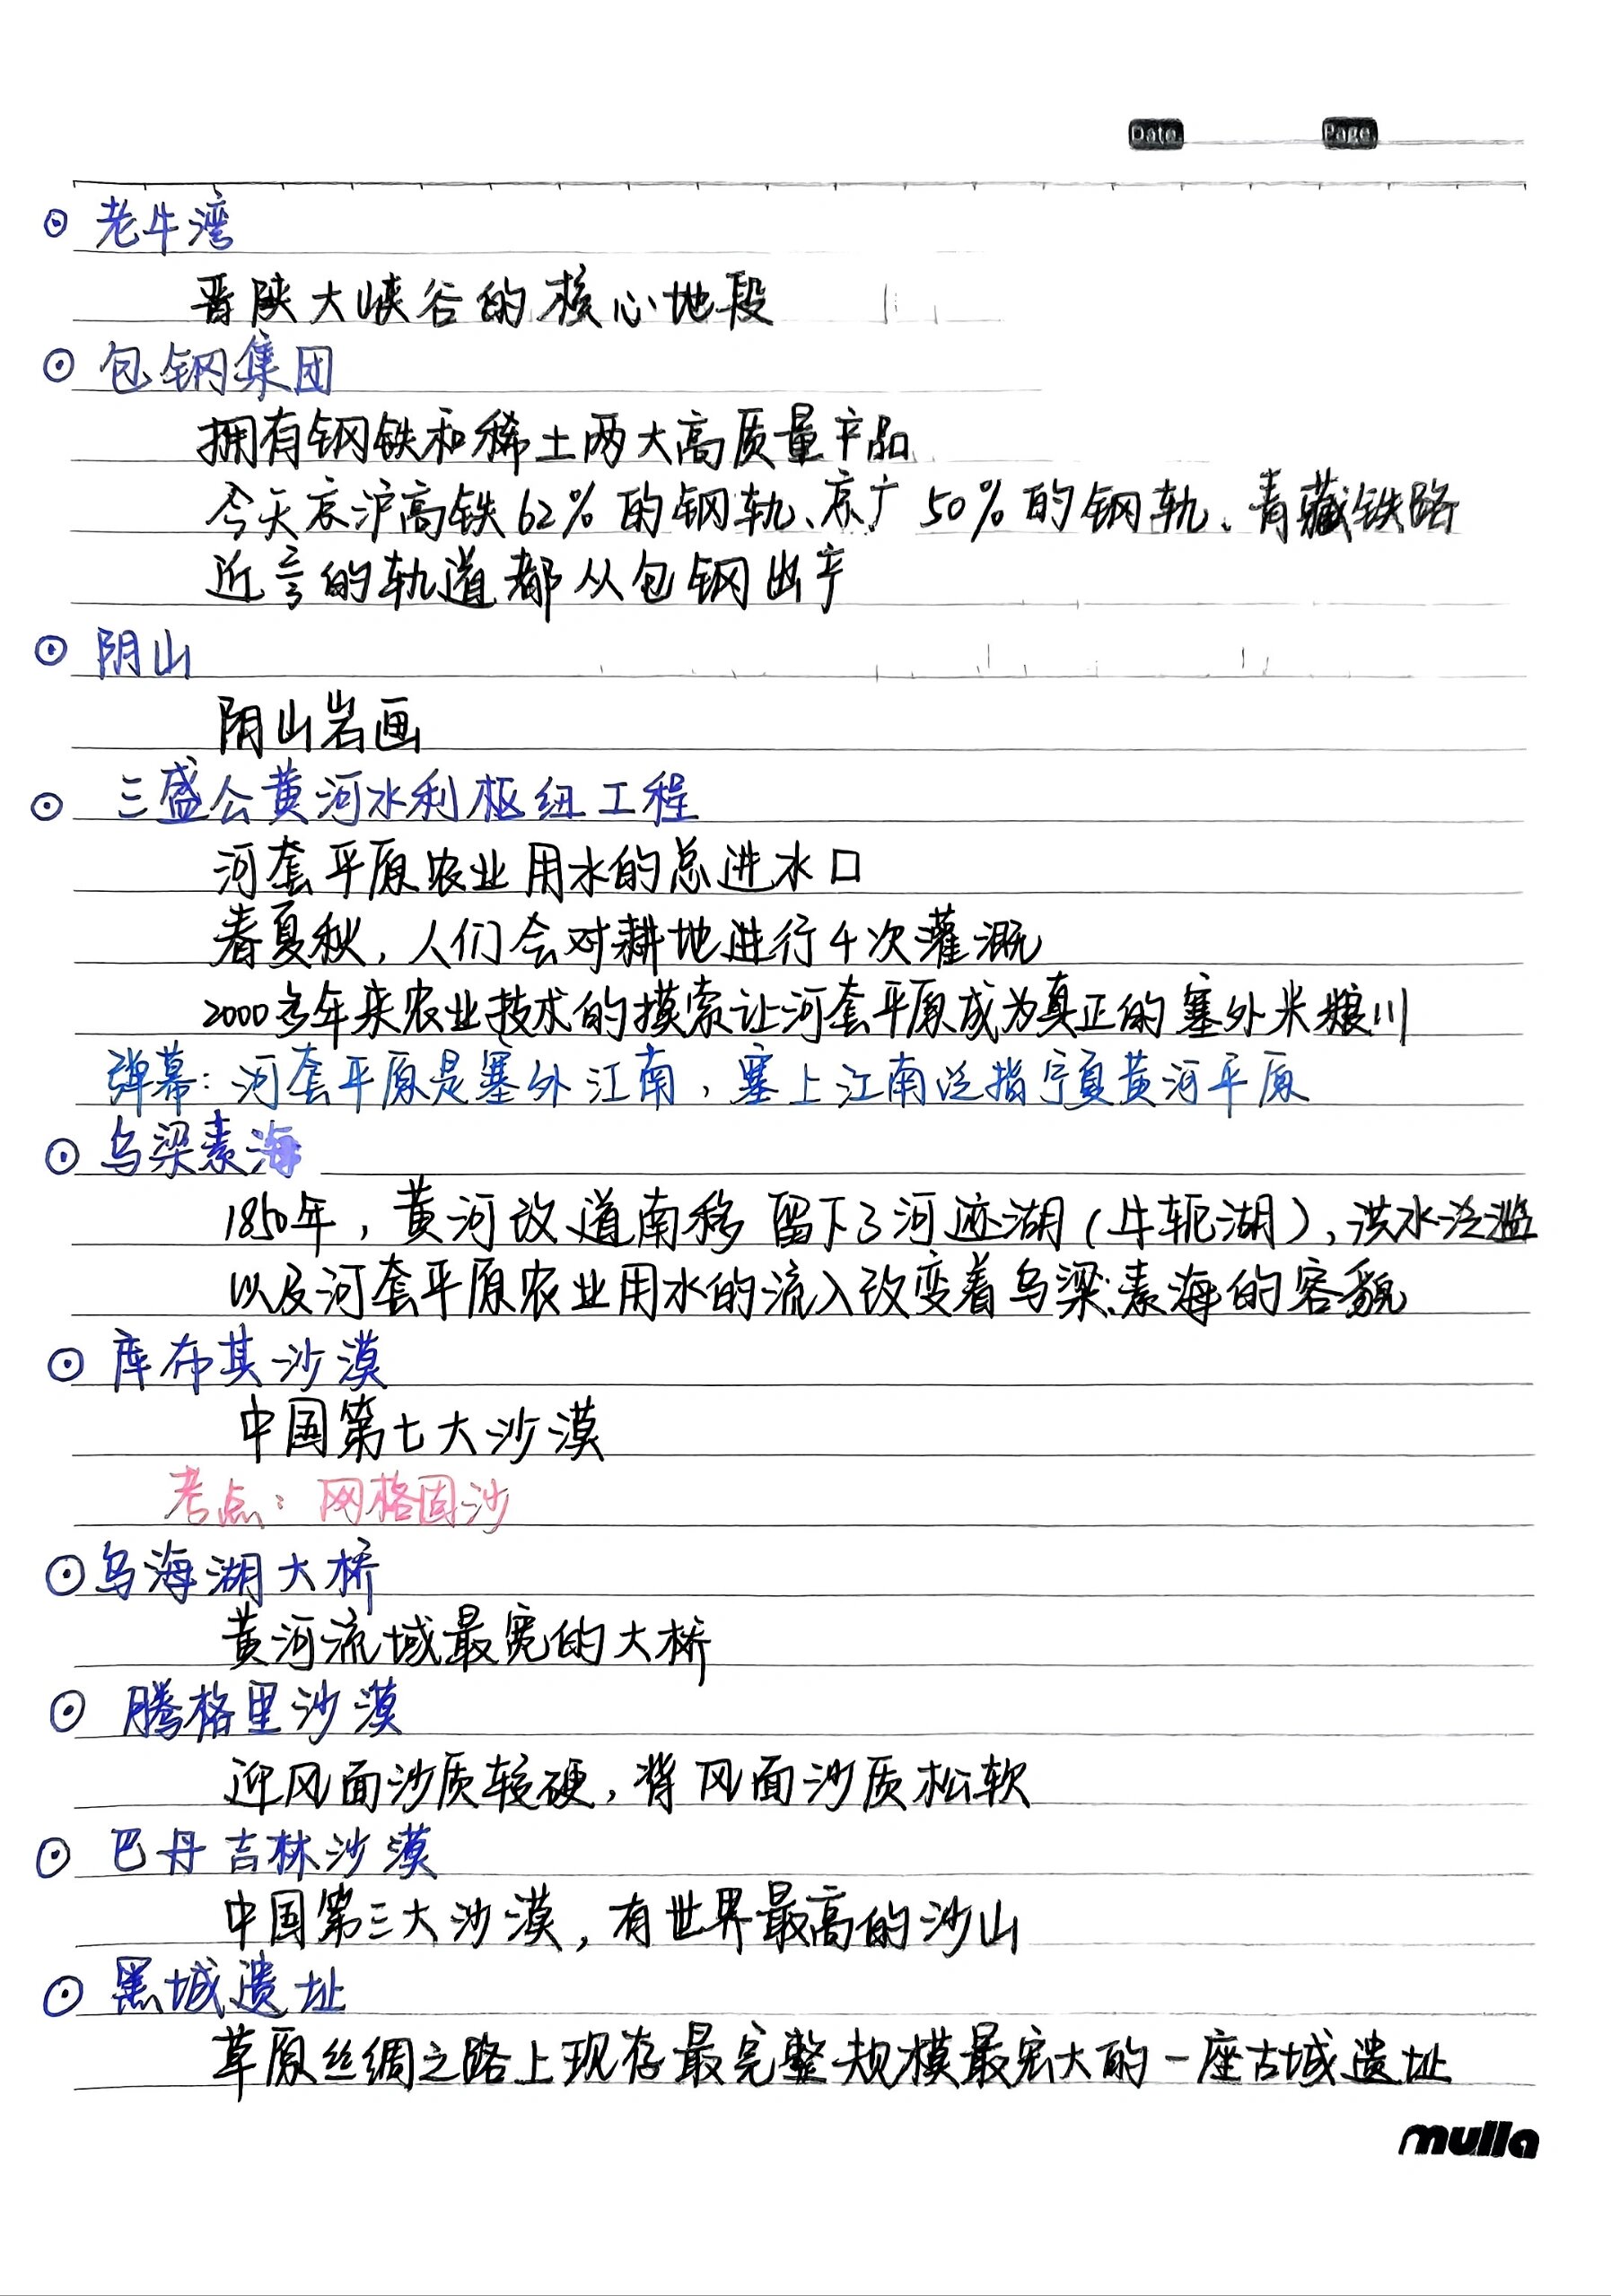 Date.
Page.
⊙ 老牛湾
晋陕大峡谷的核心地段
⊙ 包钢集团
拥有钢铁和稀土两大高质量产品
今天京沪高铁62%的钢轨、京广50%的钢轨、青藏铁路
近言的轨道都从包钢出产
⊙ 阴山
阴山岩画
⊙ 三盛公黄河水利枢纽工程
河套平原农业用水的总进水口
春夏秋，人们会对耕地进行4次灌溉
2000多年来农业技术的摸索让河套平原成为真正的塞外米粮川
弹幕：河套平原是塞外江南，塞上江南泛指宁夏黄河平原
⊙ 乌梁素海
1850年，黄河改道南移留下了河迹湖（牛轭湖），洪水泛滥
以及河套平原农业用水的流入改变着乌梁素海的容貌
⊙ 库布其沙漠
中国第七大沙漠
考点：网格固沙
⊙乌海湖大桥
黄河流域最宽的大桥
⊙ 腾格里沙漠
迎风面沙质较硬，背风面沙质松软
⊙ 巴丹吉林沙漠
中国第三大沙漠，有世界最高的沙山
⊙ 黑城遗址
草原丝绸之路上现存最完整规模最宏大的一座古城遗址
mulla